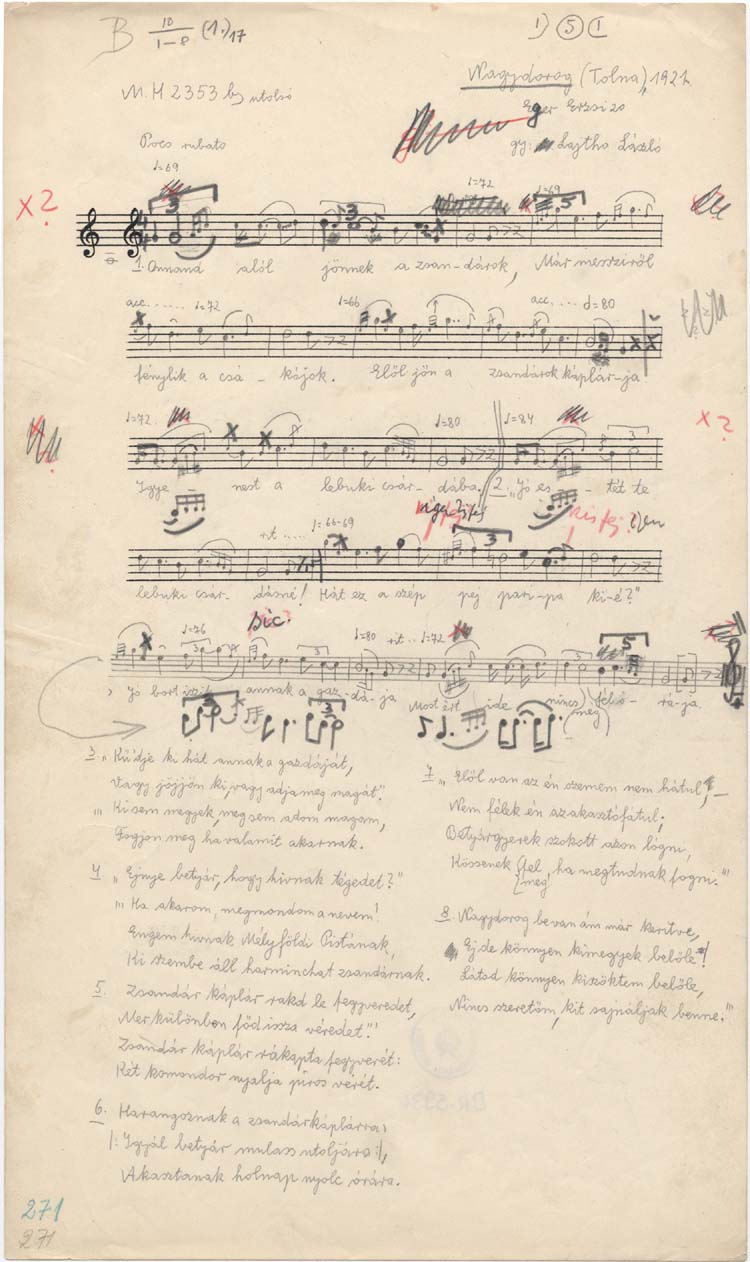 B 10/1-8 (1.) 17
1) 5 (1
M. H 2353 b) utolsó
Nagydorog (Tolna), 1921.
Eger Erzsi 20
gy: Lajtha László
Poco rubato
♩=69
X ?
♩=72
♩=69
3
5
1. Onnand alól jönnek a zsan-dárok, Már messziről
acc. ...... ♩=72
♩=66
acc. .... ♩=80
fénylik a csá - kójok. Elől jön a zsandárok káplár-ja
♩=72
♩=80
♩=84
3
X ?
Igye - nest a lebuki csár - dába. 2. „Jó es - tét te
rit .....
♩=66-69
kis fej?
3
lebuki csár - dásné! Hát ez a szép pej pari-pa ki-é?"
♩=76
sic.
♩=80
rit ...
♩=72
3
3
3
5
Jó bort iszik annak a gaz-dá-ja Most ért ide nincs (meg) fél ó - rá-ja.
3. „Küdje ki hát annak a gazdáját,
Vagy jöjjön ki, vagy adja meg magát."
„Ki sem megyek, meg sem adom magam,
Fogjon meg ha valamit akarnak.
4. „Ejnye betyár, hogy hivnak tégedet?"
„Ha akarom, megmondom a nevem!
Engem hivnak Mélyföldi Pistának,
Ki szembe áll harminchat zsandárnak.
5. Zsandár káplár rakd le fegyveredet,
Mer különben főd issza véredet."
Zsandár káplár rákapta fegyverét:
Két komondor nyalja piros vérét.
6. Harangoznak a zsandárkáplárra,
|: Igyál betyár mulass utoljára :|,
Akasztanak holnap nyolc órára.
7. „Elől van az én szemem nem hátul, –
Nem félek én az akasztófátul;
Betyárgyerek szokott azon lógni,
Kössenek (fel / meg), ha megtudnak fogni."
8. Nagydorog be van ám már keritve,
Ej de könnyen kimegyek belőle!
Látod könnyen kiszöktem belőle,
Nincs szeretőm, kit sajnáljak benne."
271
271